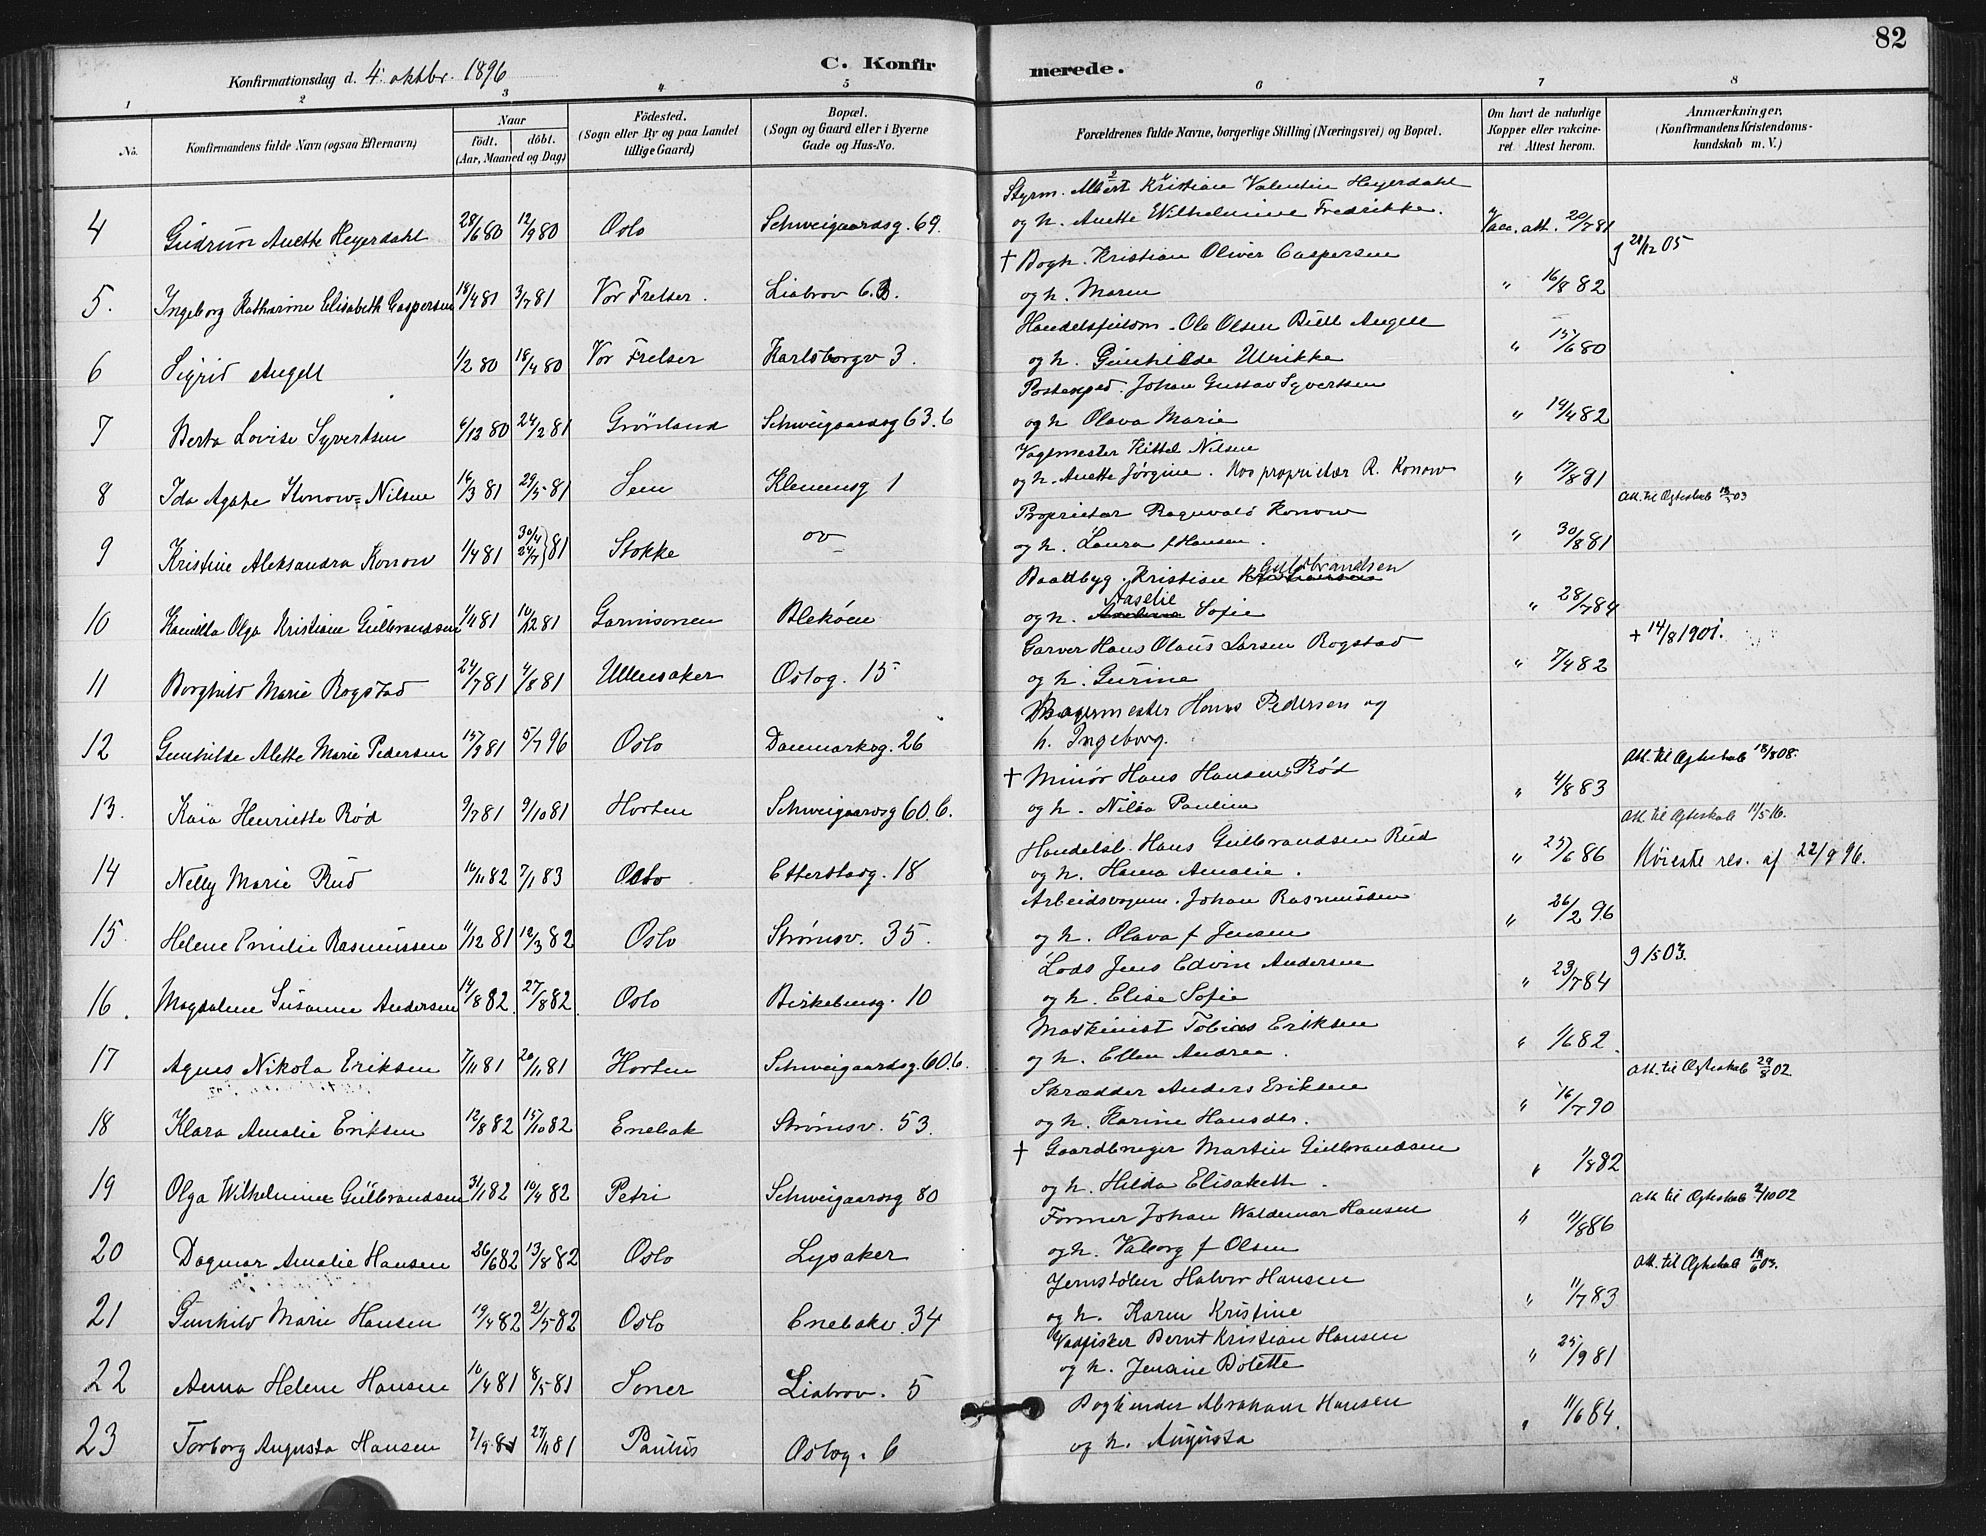 82
Konfirmationsdag d. 4. oktbr. 1896
C. Konfirmerede.
1 2 3 4 5 6 7 8
No. Konfirmandens fulde Navn (ogsaa Efternavn) Naar født. døbt. (Aar, Maaned og Dag) Fødested. (Sogn eller By og paa Landet tillige Gaard) Bopæl. (Sogn og Gaard eller i Byerne Gade og Hus-No. Forældrenes fulde Navne, borgerlige Stilling (Næringsvei) og Bopæl. Om havt de naturlige Kopper eller vakcineret. Attest herom. Anmærkninger, (Konfirmandens Kristendomskundskab m. V.)
4 Gudrun Anette Heyerdahl 28/6 80 12/9 80 Oslo Schweigaardsg. 69. Styrm. Albert Kristian Valentin Heyerdahl
og h. Anette Wilhelmine Fredrikke. Vacc. att. 20/7 81
5. Ingeborg Katharine Elisabeth Caspersen 18/4 81 3/7 81 Vor Frelser. Liabrov 63. † Bogh. Kristian Oliver Caspersen
og h. Maren " 16/8 82 28/12 05
6 Sigrid Angell 1/2 80 18/4 80 Vor Frelser Karlsborgv 3. Handelsfuldm. Ole Olsen Bull Angell
og h. Gunhilde Ulrikke " 15/6 80
7 Berta Lovise Syvertsen 6/12 80 24/2 81 Grønland Schweigaardsg 63.6 Postexped. Johan Gustav Syvertsen
og h. Olava Marie " 14/4 82
8 Ida Agathe Konow-Nilsen 16/3 81 29/5 81 Sem Klemensg 1 Vagtmester Kittel Nilsen
og h. Anette Jørgine. Hos proprietær R. Konow " 17/8 91
9 Kristine Aleksandra Konow 1/4 81 30/4 24/7 } 81 Stokke ov Proprietær Ragnvald Konow
og h. Laura f Hansen. " 30/8 81 Att. til Ægteskab 18/5 03
10 Kamilla Olga Kristiane Gulbrandsen 1/4 81 10/12 81 Garnisonen Blekøen Baadbyg. Kristian Gulbrandsen
og h. Aaselie Sofie " 28/7 84
11 Borghild Marie Rogstad 24/7 81 4/8 81 Ullensaker Oslog. 15 Garver Hans Olaus Larsen Rogstad
og h. Gurine " 7/4 82 + 14/8 1901.
12 Gunhilde Alette Marie Pedersen 15/9 81 5/7 96 Oslo Danmarksg. 26 Bagermester Hans Pedersen og
h. Ingeborg.
13. Kaia Henriette Rød 9/7 81 9/10 81 Horten Schweigaardsg 60.6. † Minør Hans Hansen Rød
og h. Nilla Pauline " 4/8 83 Att. til Ægteskab 18/8 08.
14 Nelly Marie Rud 16/11 82 7/1 83 Oslo Etterstadg. 18 Handelsb. Hans Gulbrandsen Rud
og h. Hanna Amalie. " 25/6 86 Att til Ægteskab 11/5 16.
Høieste res. af 22/9 96.
15. Helene Emilie Rasmussen 11/12 81 12/3 82 Oslo Strømsv. 35. Arbeidsvogum. Johan Rasmussen
og h. Olava f Jensen " 26/2 96
16. Magdalene Susanne Andersen 14/8 82. 27/8 82 Oslo Birkebeing. 10 Lods Jens Edvin Andersen
og h. Elise Sofie " 23/7 84 9/5 03.
17 Agnes Nikola Eriksen 7/11 81 20/11 81 Horten Schweigaardsg. 60.6. Maskinist Tobias Eriksen
og h. Ellen Andrea. " 1/6 82.
18 Klara Amalie Eriksen 12/8 82 15/10 82 Enebak Strømsv. 53. Skrædder Anders Eriksen
og h. Karine Hansdtr. " 16/7 90 Att. til Ægteskab 29/8 02.
19 Olga Wilhelmine Gulbrandsen 31/1 82 10/4 82 Petri Schweigaardsg 80 † Gaardbruger Martin Gulbrandsen
og h. Hilda Elisabeth. " 1/8 82
20 Dagmar Amalie Hansen 26/6 82 13/8 82 Oslo Lysaker Former Johan Waldemar Hansen
og h. Valborg f Olsen " 11/8 86 Att til Ægteskab 2/10 02
21 Gunhild Marie Hansen 19/4 82 21/5 82 Oslo Enebakv. 34 Jernstøber Halvor Hansen
og h. Karen Kristine " 11/7 83 Att. til Ægteskab 18/6 03.
22 Anna Helene Hansen 10/4 81 8/5 81 Soner Liabrov. 5 Vadfisker Bernt Kristian Hansen
og h. Jensine Bolette " 25/9 81
23 Torborg Augusta Hansen 7/9 81 27/11 81 Paulus Oslog. 6 Bogbinder Abraham Hansen
og h. Augusta " 11/6 84.